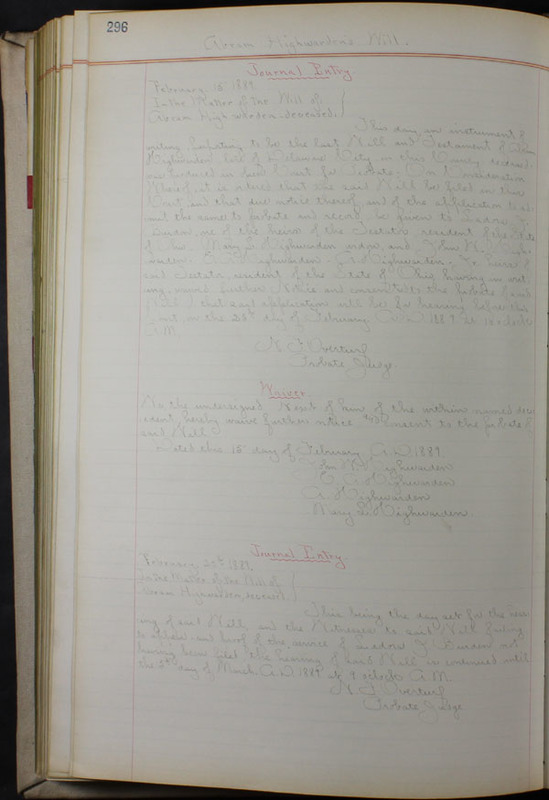 296
Abram Highwarden's Will.
Journal Entry.
February 15" 1889.
In the Matter of the Will of
Abram Highwarden, deceased.
This day an instrument of
writing purporting to be the last Will and Testament of Abram
Highwarden late of Delaware City in this County deceased
was produced in open Court for Probate; On Consideration
Whereof it is ordered that the said Will be filed in this
Court and that due notice thereof, and of the application to ad-
mit the same to probate and record be given to
one of the heirs of the Testator resident of the State
of Ohio. Mary S. Highwarden widow, and John W. High-
warden. E. A. Highwarden. A. Highwarden. heirs of
said Testator, resident of the State of Ohio, having in writ-
ing, waived further Notice and consented to the Probate of said
Will, that said application will be for hearing before this
Court, on the 25th day of February A.D. 1889 at 10 o'clock
A.M.
N. F. Overturf
Probate Judge
Waiver
We the undersigned, Next of kin of the within named dec-
edent, hereby waive further notice and consent to the probate of
said Will.
Dated this 15" day of February A.D. 1889.
John W. Highwarden
E. A. Highwarden
A. Highwarden
Mary S. Highwarden.
Journal Entry.
February 25th 1889.
In the Matter of the Will of
Abram Highwarden, deceased.
This being the day set for the hear-
ing of said Will, and the Witnesses to said Will failing
to appear and proof of the service of not
having been filed the hearing of said Will is continued until
the day of March A.D. 1889 at 9 o'clock A.M.
N. F. Overturf
Probate Judge